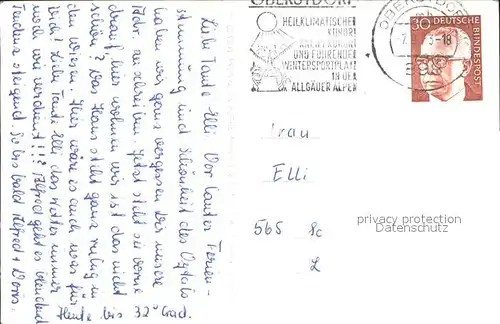 OBERSTDORF
HEILKLIMATISCHER
KURORT
KNEIPPKURORT
UND FÜHRENDER
WINTERSPORTPLATZ
IN DEN
ALLGÄUER ALPEN
OBERSTDORF
30 DEUTSCHE
BUNDESPOST
Liebe Tante Elli! Vor lauter Ferien-
stimmung und Schönheit des Oytals
haben wir ganz vergessen Dir unsere
Adr. zu schreiben. Jetzt steht sie vorne
drauf. Hier wohnen wir, ist das nicht
schön? Das Haus steht ganz ruhig in
den Wiesen. Hier wäre es auch was für
Dich! Liebe Tante Elli das Wetter nimmer
noch wir verdient!!! Alfred geht es blendend
Tendenz steigend. So bis bald Alfred + Doris.
Heute bis 32° Grad.
Frau
Elli
565
2
privacy protection
Datenschutz